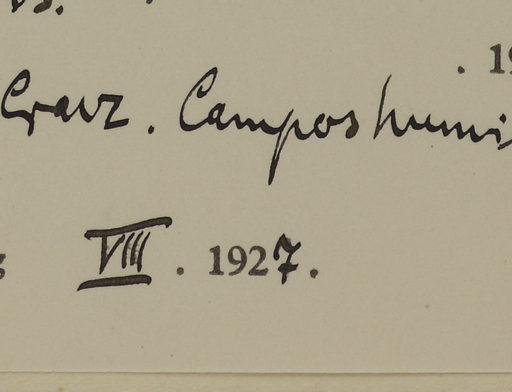 . 19
Gravz. Campos humi
VIII . 1927.